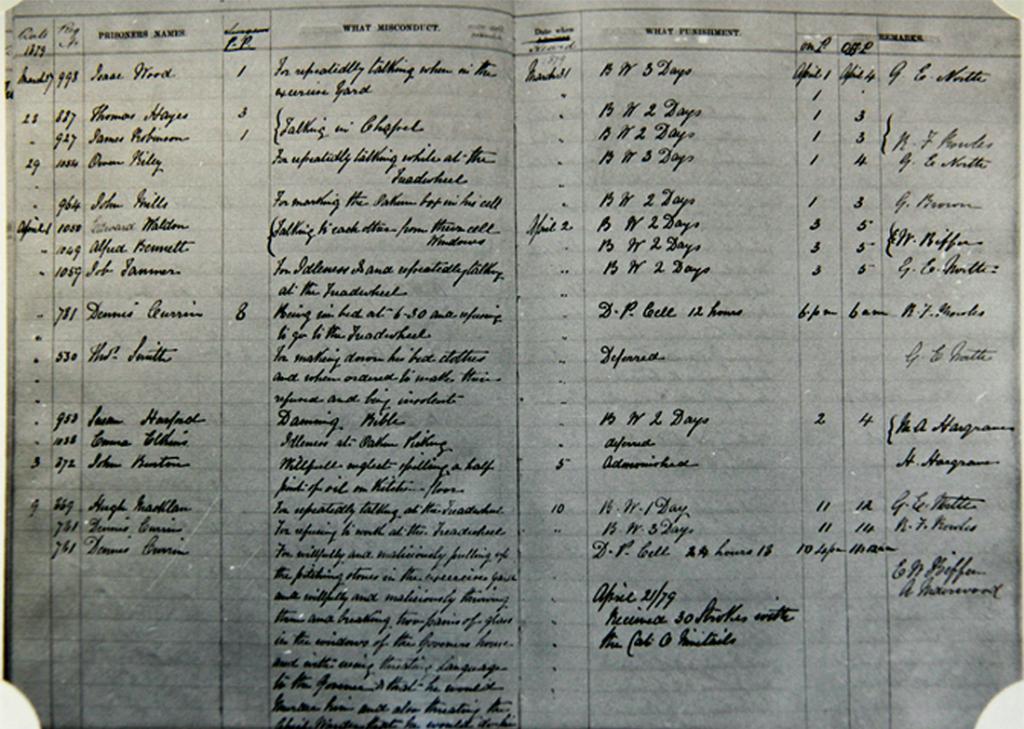 Date Reg PRISONERS NAMES. WHAT MISCONDUCT. Date when WHAT PUNISHMENT. on P Off P REMARKS.
1879 No P.P.
March 27 993 Isaac Wood 1 For repeatedly talking when in the March 31 B W 3 Days April 1 April 4 G. E. North
exercise Yard 1
28 887 Thomas Hayes 3 B W 2 Days 1 3
Talking in Chapel
" 927 James Robinson 1 B W 2 Days 1 3 R. F. Knowles
29 1034 Owen Riley For repeatedly talking while at the B W 3 Days 1 4 G. E. North
Treadwheel
" 964 John Mills For marking the Oakum box in his cell B W 2 Days 1 3 G. Brown
April 1 1050 Edward Waldon Talking to each other from their cell April 2 B W 2 Days 3 5
Windows
" 1049 Alfred Bennett B W 2 Days 3 5 W. Biffen
" 1059 Job Tanner For Idleness and repeatedly talking B W 2 Days 3 5 G. E. North
at the Treadwheel
" 781 Dennis Currin 8 Being in bed at 6-30 and refusing D. P. Cell 12 hours 6 pm 6 am R. F. Knowles
to go to the Treadwheel
" 530 Thos. Smith For making down his bed clothes Deferred G. E. North
and when ordered to make them
refused and being insolent
" 953 Susan Hanford Damning Bible B W 2 Days 2 4 M. A. Hargrave
" 1038 Emma Elkins Idleness at Oakum Picking deferred
3 872 John Burton Willfull neglect spilling a half 5 Admonished H. Hargrave
pint of oil on Kitchen floor
9 Hugh For repeatedly talking at the Treadwheel 10 B. W. 1 Day 11 12 G. E. North
781 Dennis Currin For refusing to work at the Treadwheel B. W. 3 Days 11 14 R. F. Knowles
781 Dennis Currin For willfully and maliciously pulling up D. P. Cell 24 hours
the pitching stones in the exercise yard
and willfully and maliciously throwing April 21/79
them and breaking two panes of glass Received 30 Strokes with
in the windows of the Governors house the Cat O Ninetails
and with using threatening Language
to the Governor that he would
him and also threating the
Warder that he would